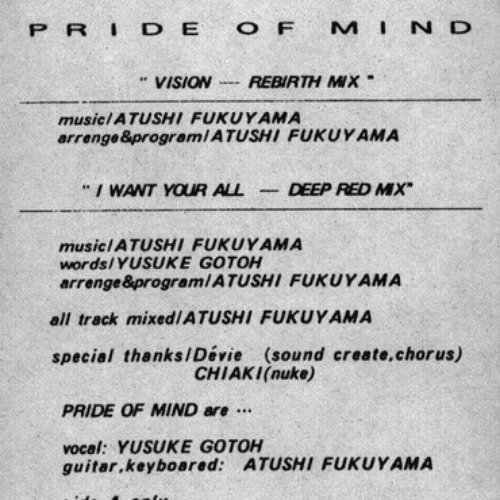 PRIDE OF MIND
" VISION — REBIRTH MIX "
music/ATUSHI FUKUYAMA
arrenge&program/ATUSHI FUKUYAMA
" I WANT YOUR ALL — DEEP RED MIX"
music/ATUSHI FUKUYAMA
words/YUSUKE GOTOH
arrenge&program/ATUSHI FUKUYAMA
all track mixed/ATUSHI FUKUYAMA
special thanks/Dévie (sound create,chorus)
CHIAKI(nuke)
PRIDE OF MIND are …
vocal: YUSUKE GOTOH
guitar,keyboared: ATUSHI FUKUYAMA
only